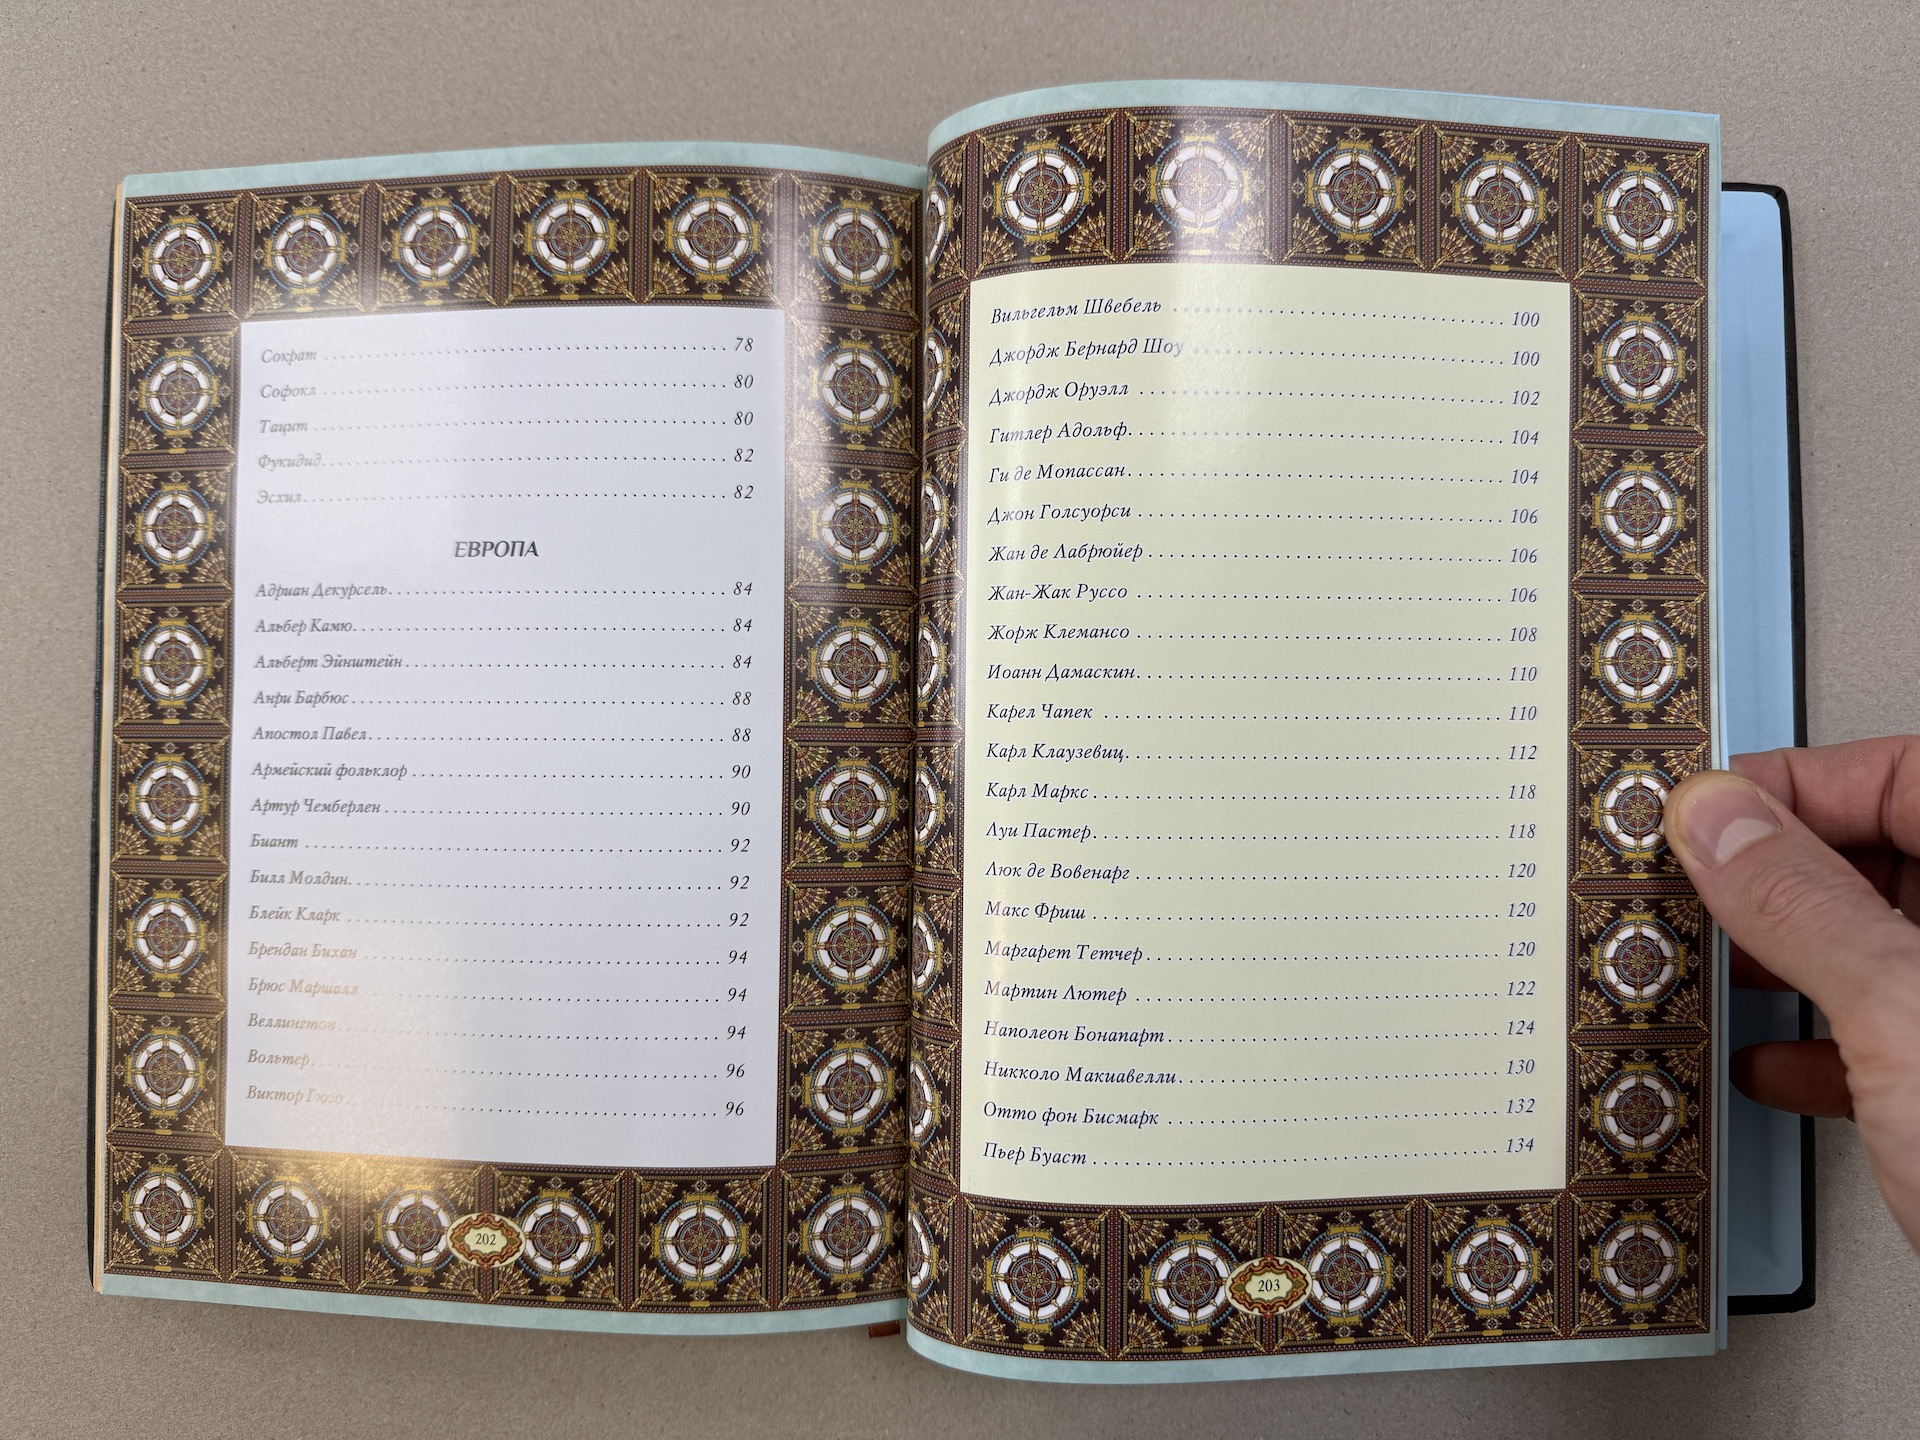 Сократ . . . . . . . . . . . . . . . . . . . . 78
Софокл . . . . . . . . . . . . . . . . . . . . 80
Тацит . . . . . . . . . . . . . . . . . . . . 80
Фукидид. . . . . . . . . . . . . . . . . . . . 82
Эсхил. . . . . . . . . . . . . . . . . . . . 82
ЕВРОПА
Адриан Декурсель. . . . . . . . . . . . . . . . . . . . 84
Альбер Камю. . . . . . . . . . . . . . . . . . . . 84
Альберт Эйнштейн . . . . . . . . . . . . . . . . . . . . 84
Анри Барбюс . . . . . . . . . . . . . . . . . . . . 88
Апостол Павел. . . . . . . . . . . . . . . . . . . . 88
Армейский фольклор . . . . . . . . . . . . . . . . . . . . 90
Артур Чемберлен . . . . . . . . . . . . . . . . . . . . 90
Биант . . . . . . . . . . . . . . . . . . . . 92
Билл Молдин. . . . . . . . . . . . . . . . . . . . 92
Блейк Кларк . . . . . . . . . . . . . . . . . . . . 92
Брендан Бихан . . . . . . . . . . . . . . . . . . . . 94
Брюс Маршалл . . . . . . . . . . . . . . . . . . . . 94
Веллингтон . . . . . . . . . . . . . . . . . . . . 94
Вольтер. . . . . . . . . . . . . . . . . . . . 96
Виктор Гюго . . . . . . . . . . . . . . . . . . . . 96
202
Вильгельм Швебель . . . . . . . . . . . . . . . . . . . . 100
Джордж Бернард Шоу . . . . . . . . . . . . . . . . . . . . 100
Джордж Оруэлл . . . . . . . . . . . . . . . . . . . . 102
Гитлер Адольф. . . . . . . . . . . . . . . . . . . . 104
Ги де Мопассан. . . . . . . . . . . . . . . . . . . . 104
Джон Голсуорси . . . . . . . . . . . . . . . . . . . . 106
Жан де Лабрюйер . . . . . . . . . . . . . . . . . . . . 106
Жан-Жак Руссо . . . . . . . . . . . . . . . . . . . . 106
Жорж Клемансо . . . . . . . . . . . . . . . . . . . . 108
Иоанн Дамаскин. . . . . . . . . . . . . . . . . . . . 110
Карел Чапек . . . . . . . . . . . . . . . . . . . . 110
Карл Клаузевиц. . . . . . . . . . . . . . . . . . . . 112
Карл Маркс . . . . . . . . . . . . . . . . . . . . 118
Луи Пастер. . . . . . . . . . . . . . . . . . . . 118
Люк де Вовенарг . . . . . . . . . . . . . . . . . . . . 120
Макс Фриш . . . . . . . . . . . . . . . . . . . . 120
Маргарет Тетчер . . . . . . . . . . . . . . . . . . . . 120
Мартин Лютер . . . . . . . . . . . . . . . . . . . . 122
Наполеон Бонапарт . . . . . . . . . . . . . . . . . . . . 124
Никколо Макиавелли. . . . . . . . . . . . . . . . . . . . 130
Отто фон Бисмарк . . . . . . . . . . . . . . . . . . . . 132
Пьер Буаст . . . . . . . . . . . . . . . . . . . . 134
203